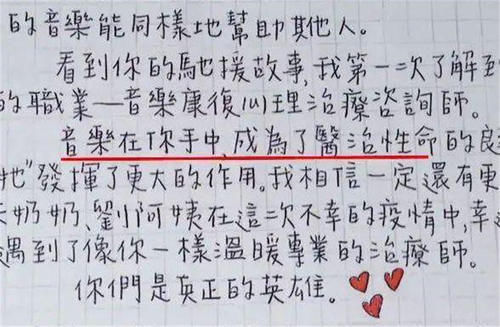 的音樂能同樣地幫助其他人。
看到你的馳援故事,我第一次了解到
的職業—音樂康復心理治療咨詢師。
音樂在你手中,成為了醫治性命的良
地"發揮了更大的作用。我相信一定還有更
奶奶、劉阿姨在這次不幸的疫情中,幸
遇到了像你一樣溫暖專業的治療師。
你們是真正的英雄。